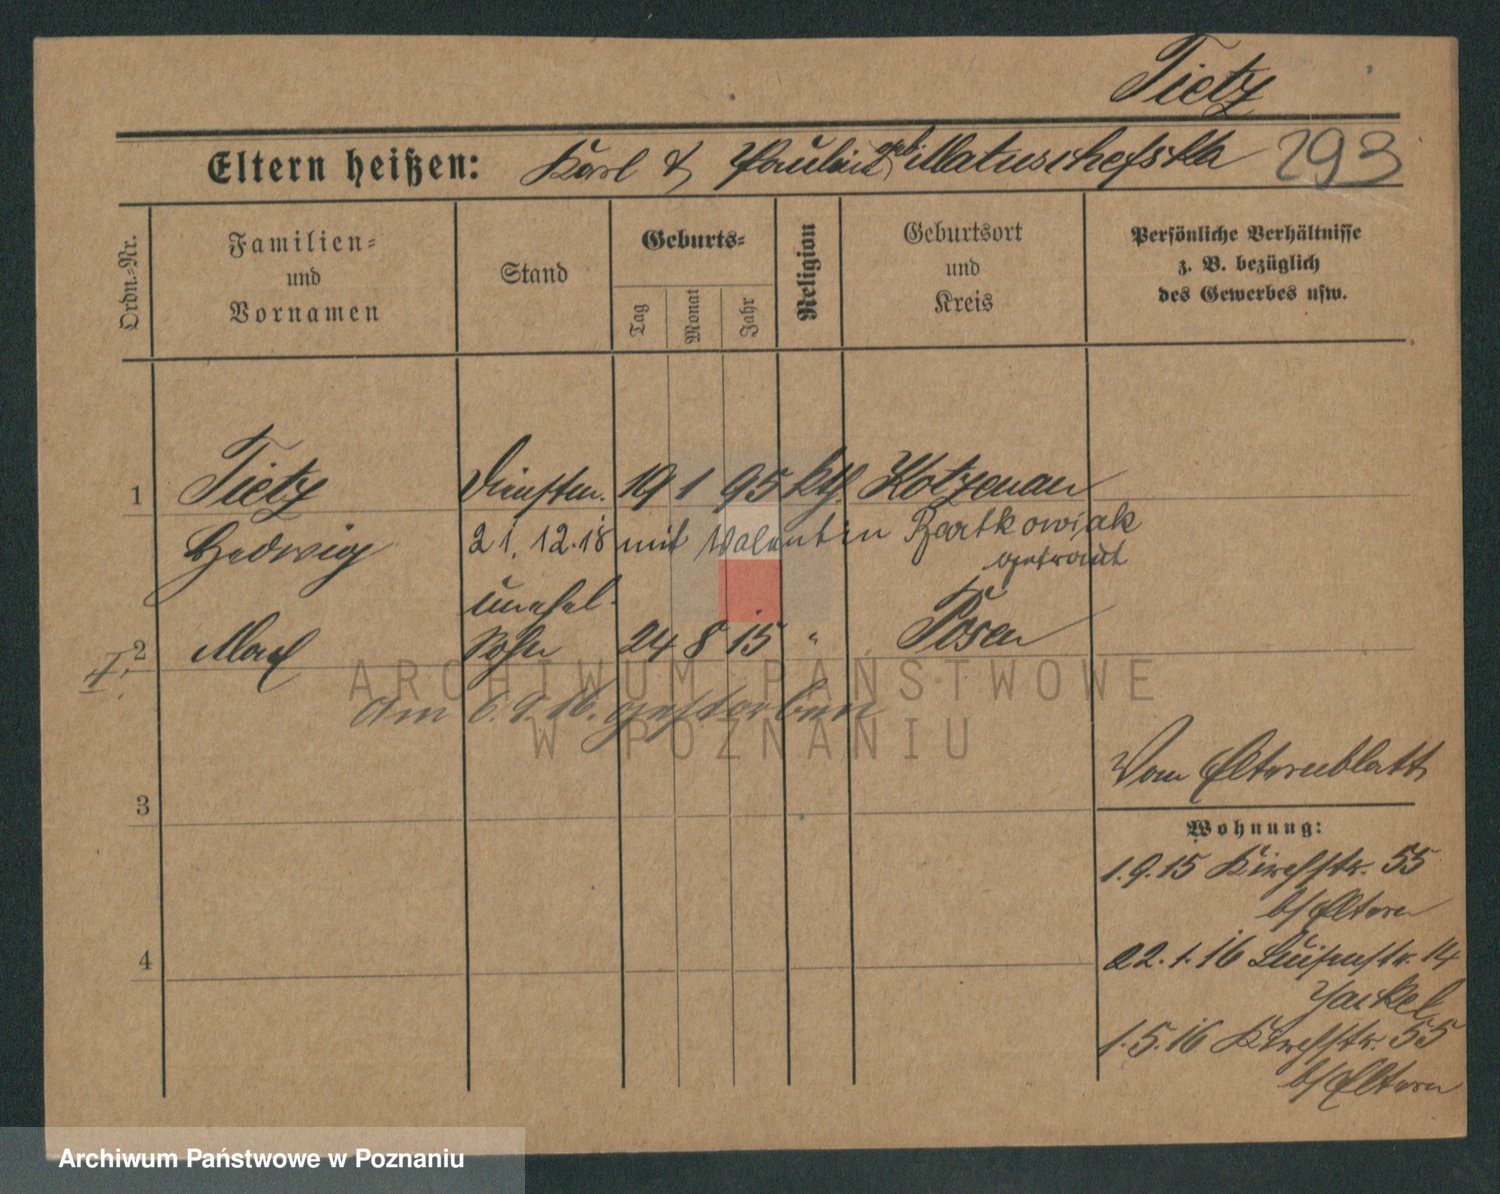 Tietz
Eltern heißen: Karl & Pauline geb. Matuschefska 293
Ordn.-Nr.
Familien-
und
Vornamen
Stand
Geburts-
Tag
Monat
Jahr
Religion
Geburtsort
und
Kreis
Persönliche Verhältnisse
z. B. bezüglich
des Gewerbes usw.
1 Tietz Dienstm. 19 1 95 kth. Kotzenau
Hedwig 21.12.18 mit Valentin Bartkowiak
getraut
unehel.
2 Max Sohn 24 8 15 " Posen
I.
Am 6.9.16. gestorben
ARCHIWUM PAŃSTWOWE
W POZNANIU
Vom Elternblatt
3
Wohnung:
1.9.15 Kirchstr. 55
b/Eltern
4
22.1.16 Luisenstr. 14
1.5.16 Kirchstr. 55
b/Eltern
Archiwum Państwowe w Poznaniu